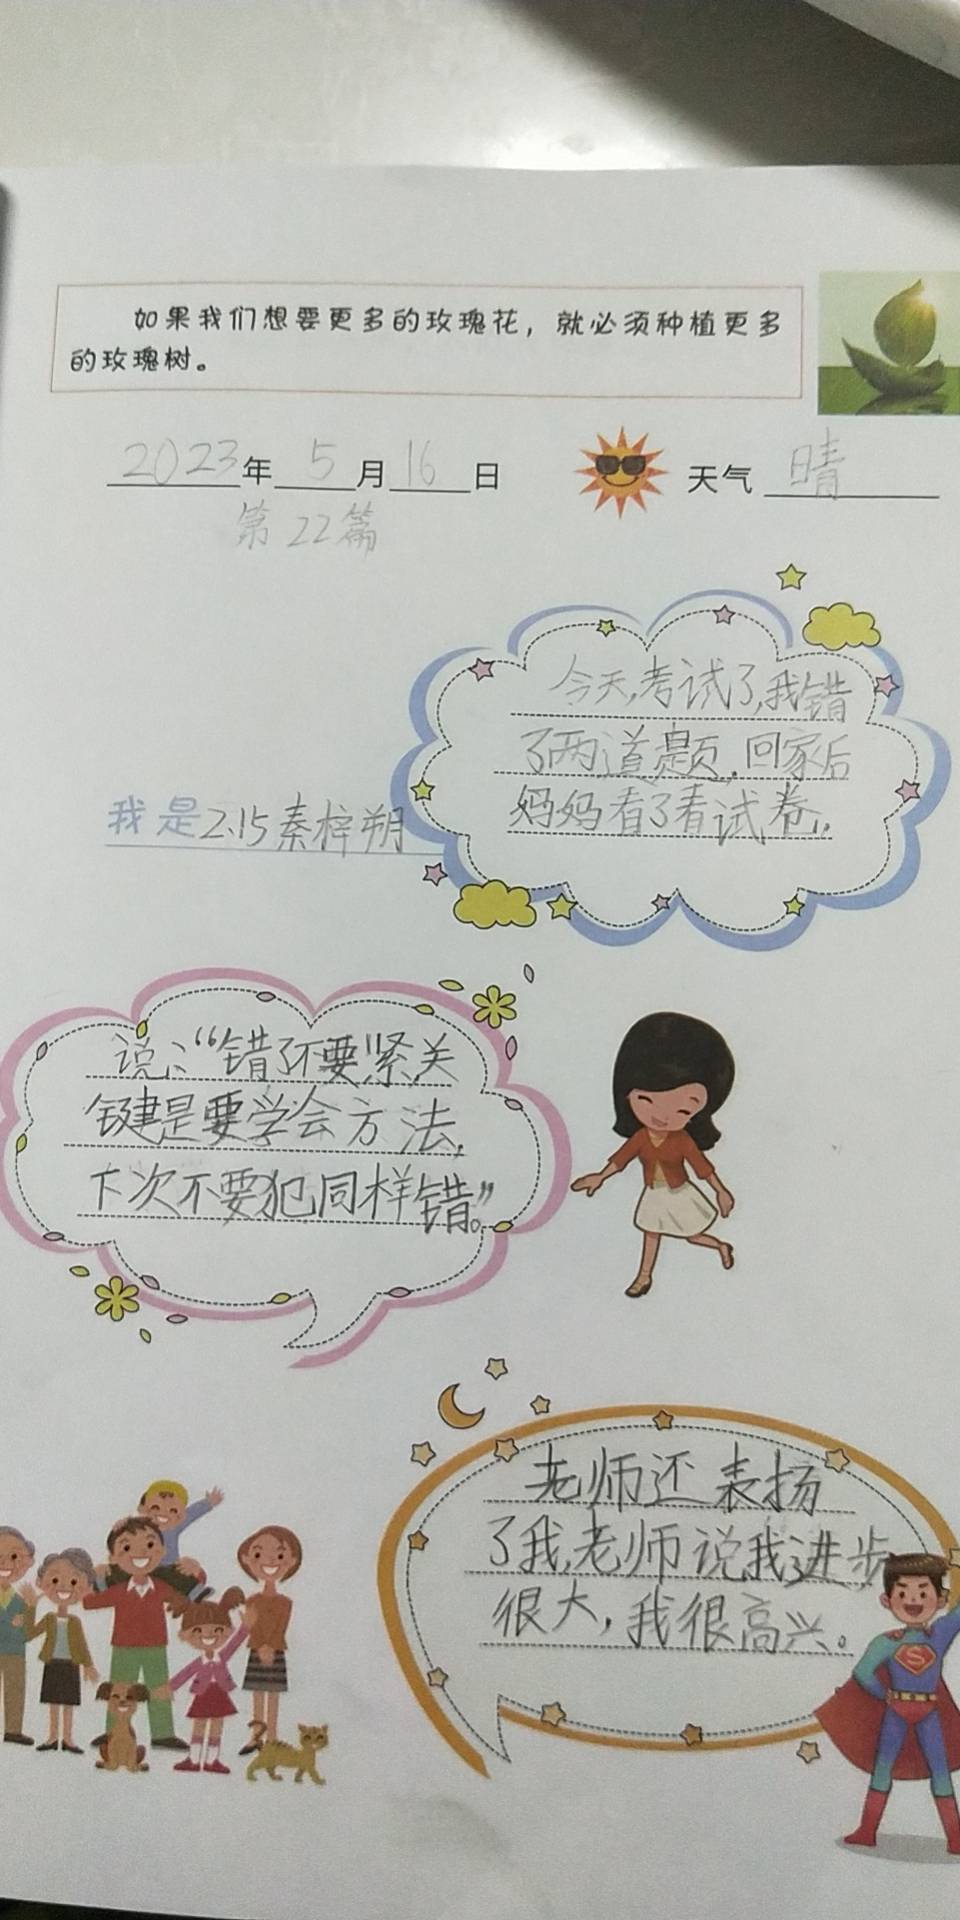 如果我们想要更多的玫瑰花，就必须种植更多
的玫瑰树。
2023年5月16日 天气 晴
第22篇
今天,考试了,我错
了两道题,回家后
妈妈看了看试卷,
我是2.15秦梓朔
说:“错了不要紧,关
键是要学会方法,
下次不要犯同样错。”
老师还表扬
了我,老师说我进步
很大,我很高兴。
S